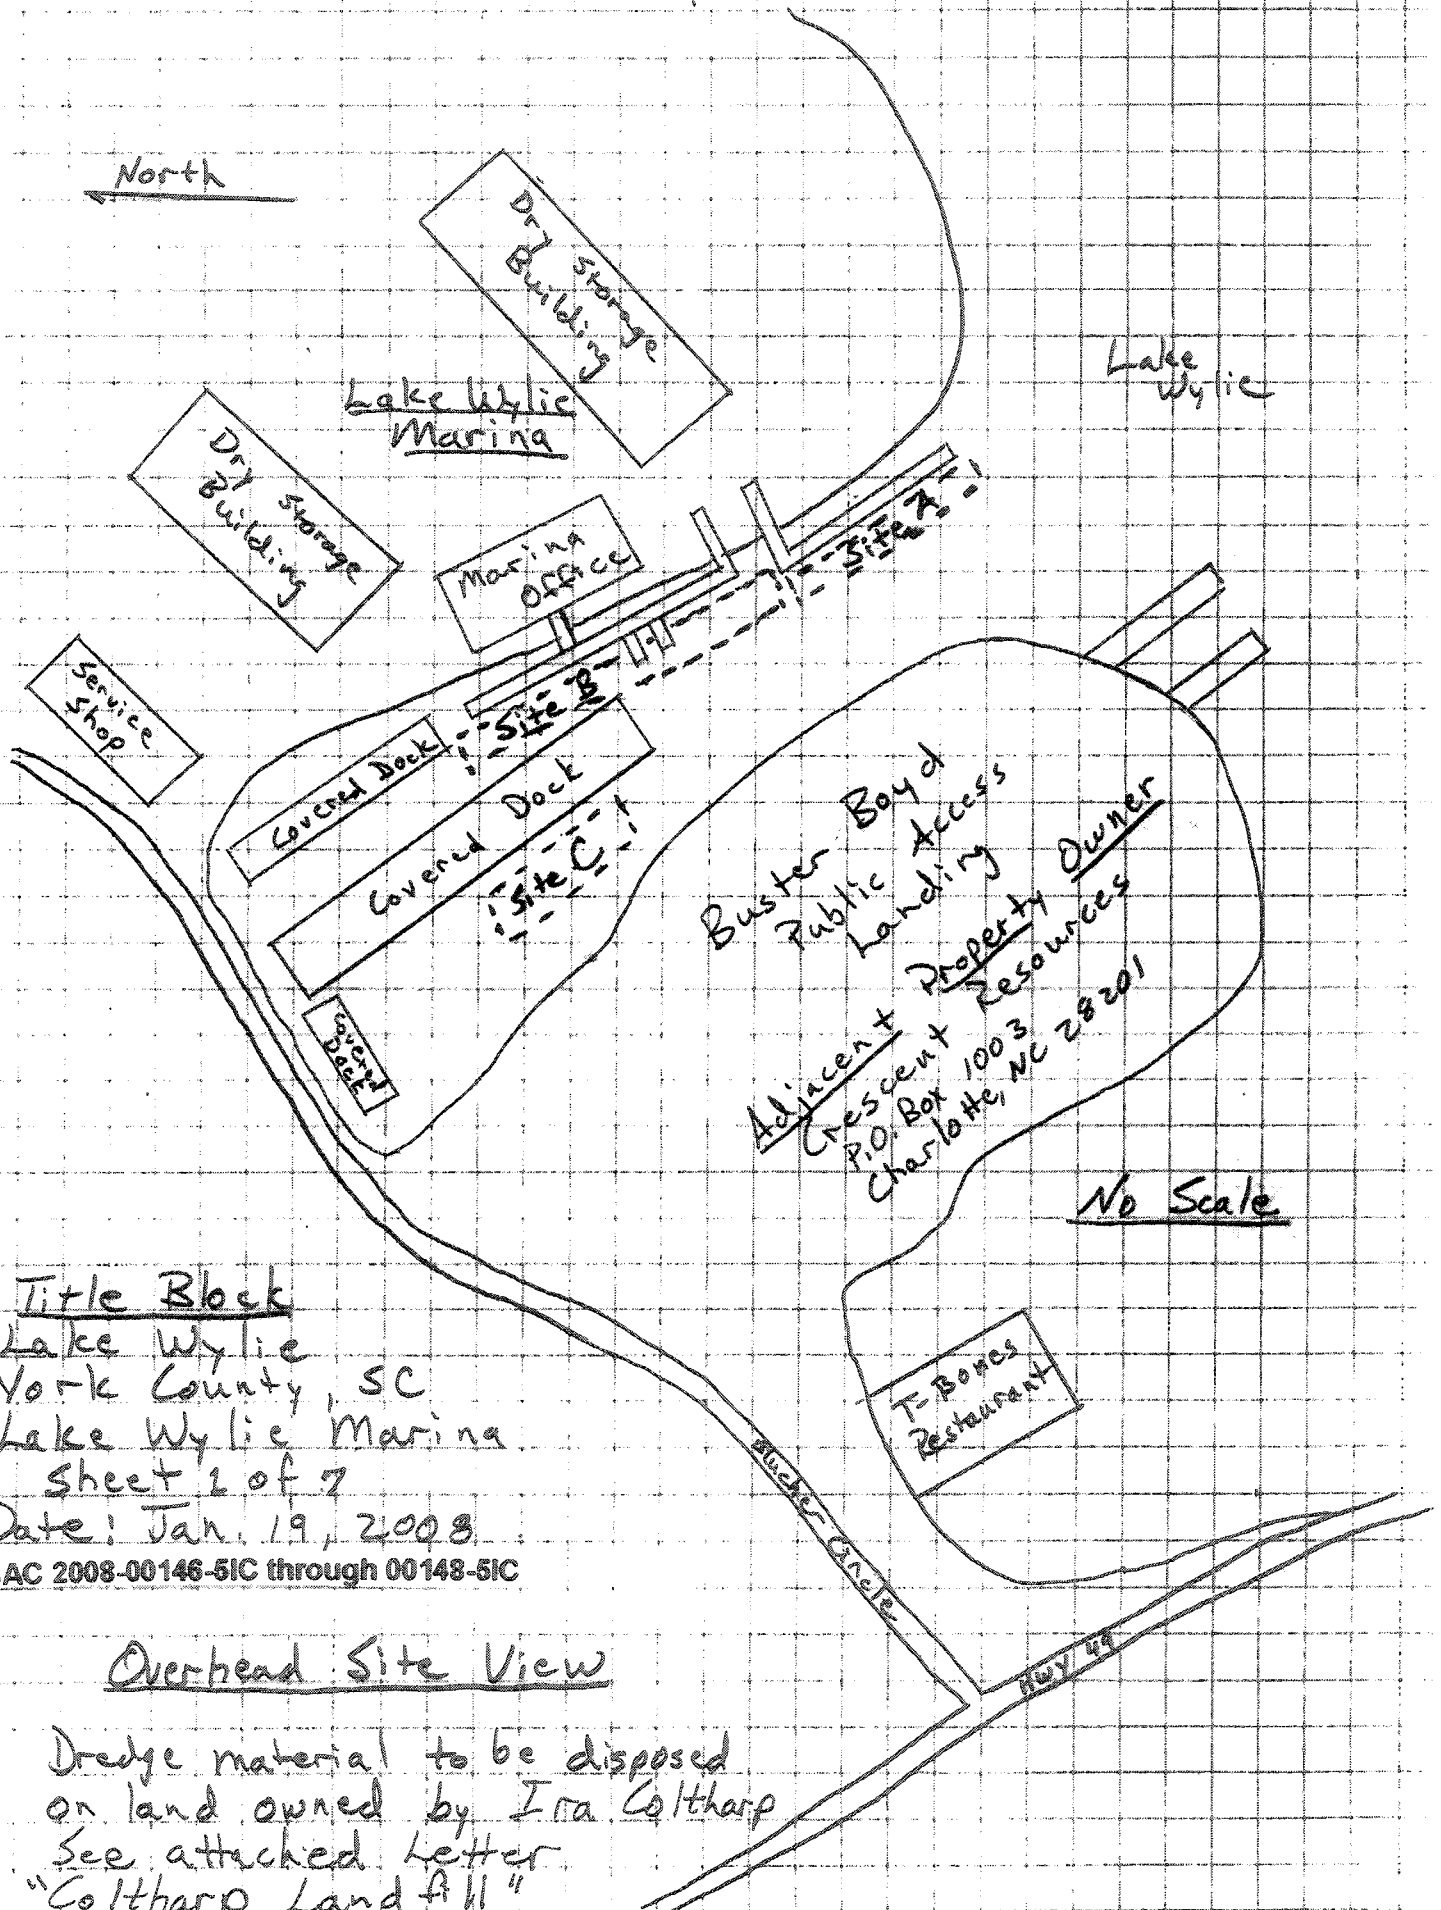 North
Dry Storage
Building
Lake Wylie
Lake Wylie
Marina
Dry Storage
Building
Marina
Office
Site A
Service
Shop
Site B
Covered Dock
Covered Dock
Site C
Covered
Dock
Buster Boyd
Public Access
Landing
Adjacent Property Owner
Crescent Resources
P.O. Box 1003
Charlotte, NC 28201
No Scale
Title Block
Lake Wylie
York County, SC
Lake Wylie Marina
Sheet 1 of 7
Date: Jan. 19, 2008
AC 2008-00146-5IC through 00148-5IC
T-Bones
Restaurant
Blucher Circle
Hwy 49
Overhead Site View
Dredge material to be disposed
on land owned by Ira Coltharp
See attached Letter
"Coltharp Landfill"